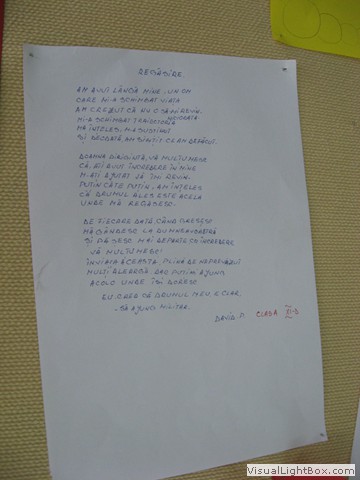 REGĂSIRE
AM AVUT LÂNGĂ MINE, UN OM
CARE MI-A SCHIMBAT VIAȚA
AM CREZUT CĂ NU O SĂ-MI REVIN.
NICIODATĂ
MI-A SCHIMBAT TRAIECTORIA
MĂ ÎNȚELES, M-A SUSȚINUT
ȘI DEODATĂ, AM SIMȚIT CE AM DEFĂCUT.
DOAMNA DIRIGINTĂ, VĂ MULȚUMESC
CĂ, AȚI AVUT ÎNCREDERE ÎN MINE
M-AȚI AJUTAT SĂ ÎMI REVIN.
PUȚIN CÂTE PUȚIN, AM ÎNȚELES
CĂ DRUMUL ALES ESTE ACELA
UNDE MĂ REGĂSESC.
DE FIECARE DATĂ, CÂND GREȘESC
MĂ GÂNDESC LA DUMNEAVOASTRĂ
ȘI PĂȘESC MAI DEPARTE CU ÎNCREDERE
VĂ MULȚUMESC!
ÎN VIAȚA ACEASTA PLINĂ DE NEPREVĂZUT
MULȚI ALEARGĂ, DAR PUȚINI AJUNG
ACOLO UNDE ÎȘI DORESC
EU CRED CĂ DRUMUL MEU E CLAR.
- SĂ AJUNG MILITAR.
DAVID P. CLASA XI-B
VisualLightBox.com